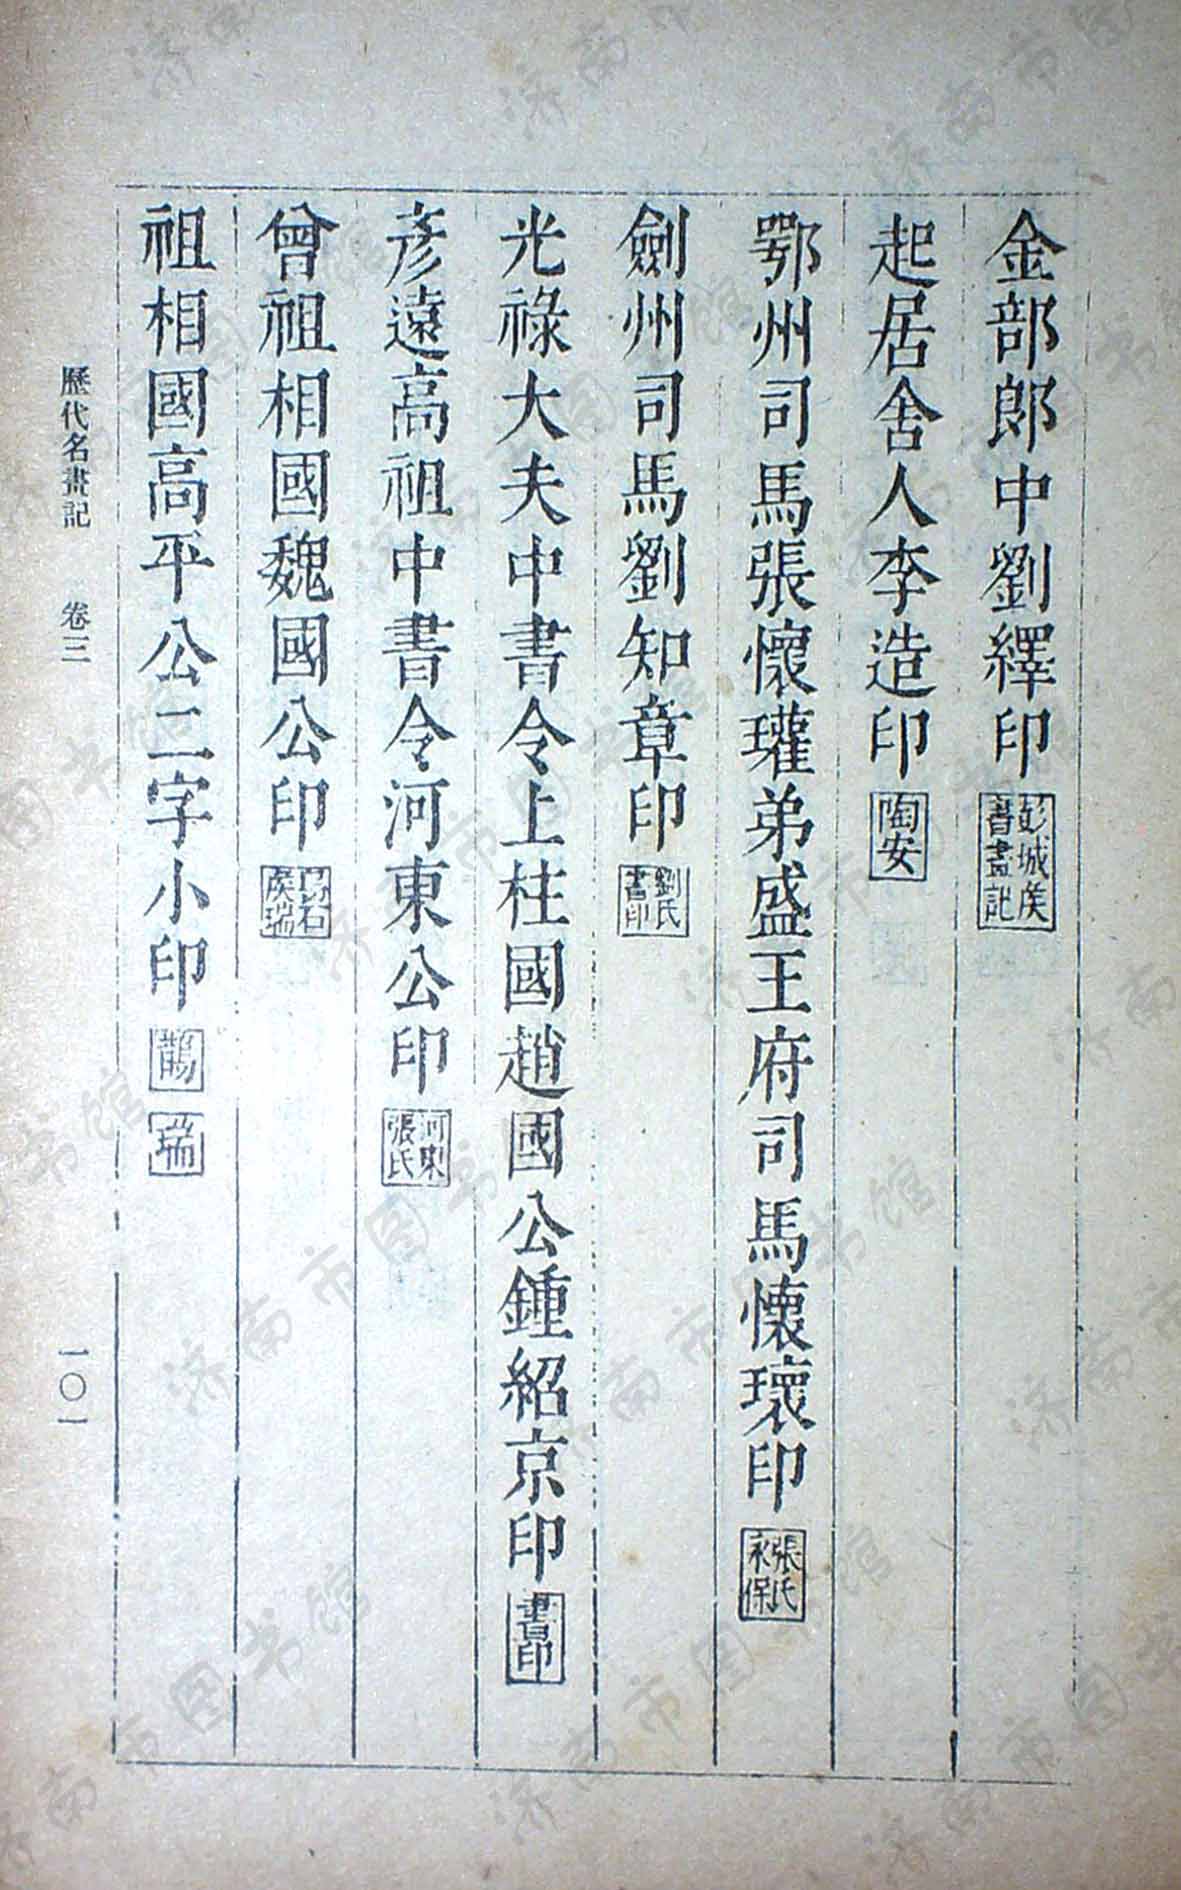 金部郎中劉繹印 彭城矦書畫記
起居舍人李造印 陶安
鄂州司馬張懷瓘弟盛王府司馬懷瓌印 張氏永保
劍州司馬劉知章印 劉氏書印
光祿大夫中書令上柱國趙國公鍾紹京印 書印
彥遠高祖中書令河東公印 河東張氏
曾祖相國魏國公印 烏石矦瑞
祖相國高平公二字小印 鵲 瑞
歷代名畫記 卷三 一〇一
济南市图书馆